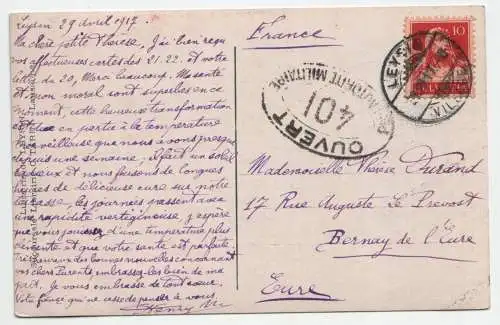 Leysin 29 avril 1917
Ma chère petite Thérèse, J'ai bien reçu
vos affectueuses cartes des 21.22 et votre
lettre du 20, Merci beaucoup. Ma santé
et mon moral sont superbes en ce
moment, cette heureuse transformation
est due en partie à la température
merveilleuse que nous avons
depuis une semaine. Il fait un soleil
et nous faisons de longues
heures de délicieuse cure sur notre
terrasse, les journées passent avec
une rapidité vertigineuse, j'espère
que vous jouissez d'une température plus
clémente et que votre santé est parfaite.
Très heureux des bonnes nouvelles concernant
vos chers Parents, embrassez-les bien de ma
part. Je vous embrasse de tout cœur.
Votre fiancé qui ne cesse de penser à vous
Henry
France
10
HELVETIA
LEYSIN
OUVERT
401
AUTORITÉ MILITAIRE
Mademoiselle Thérèse Durand
17 Rue Auguste Le Prevost
Bernay de l'Eure
Eure